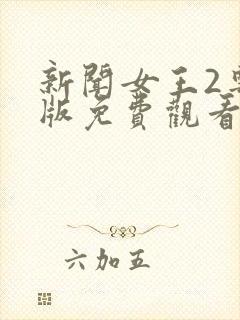 新聞女王2
版免費觀看
六加五